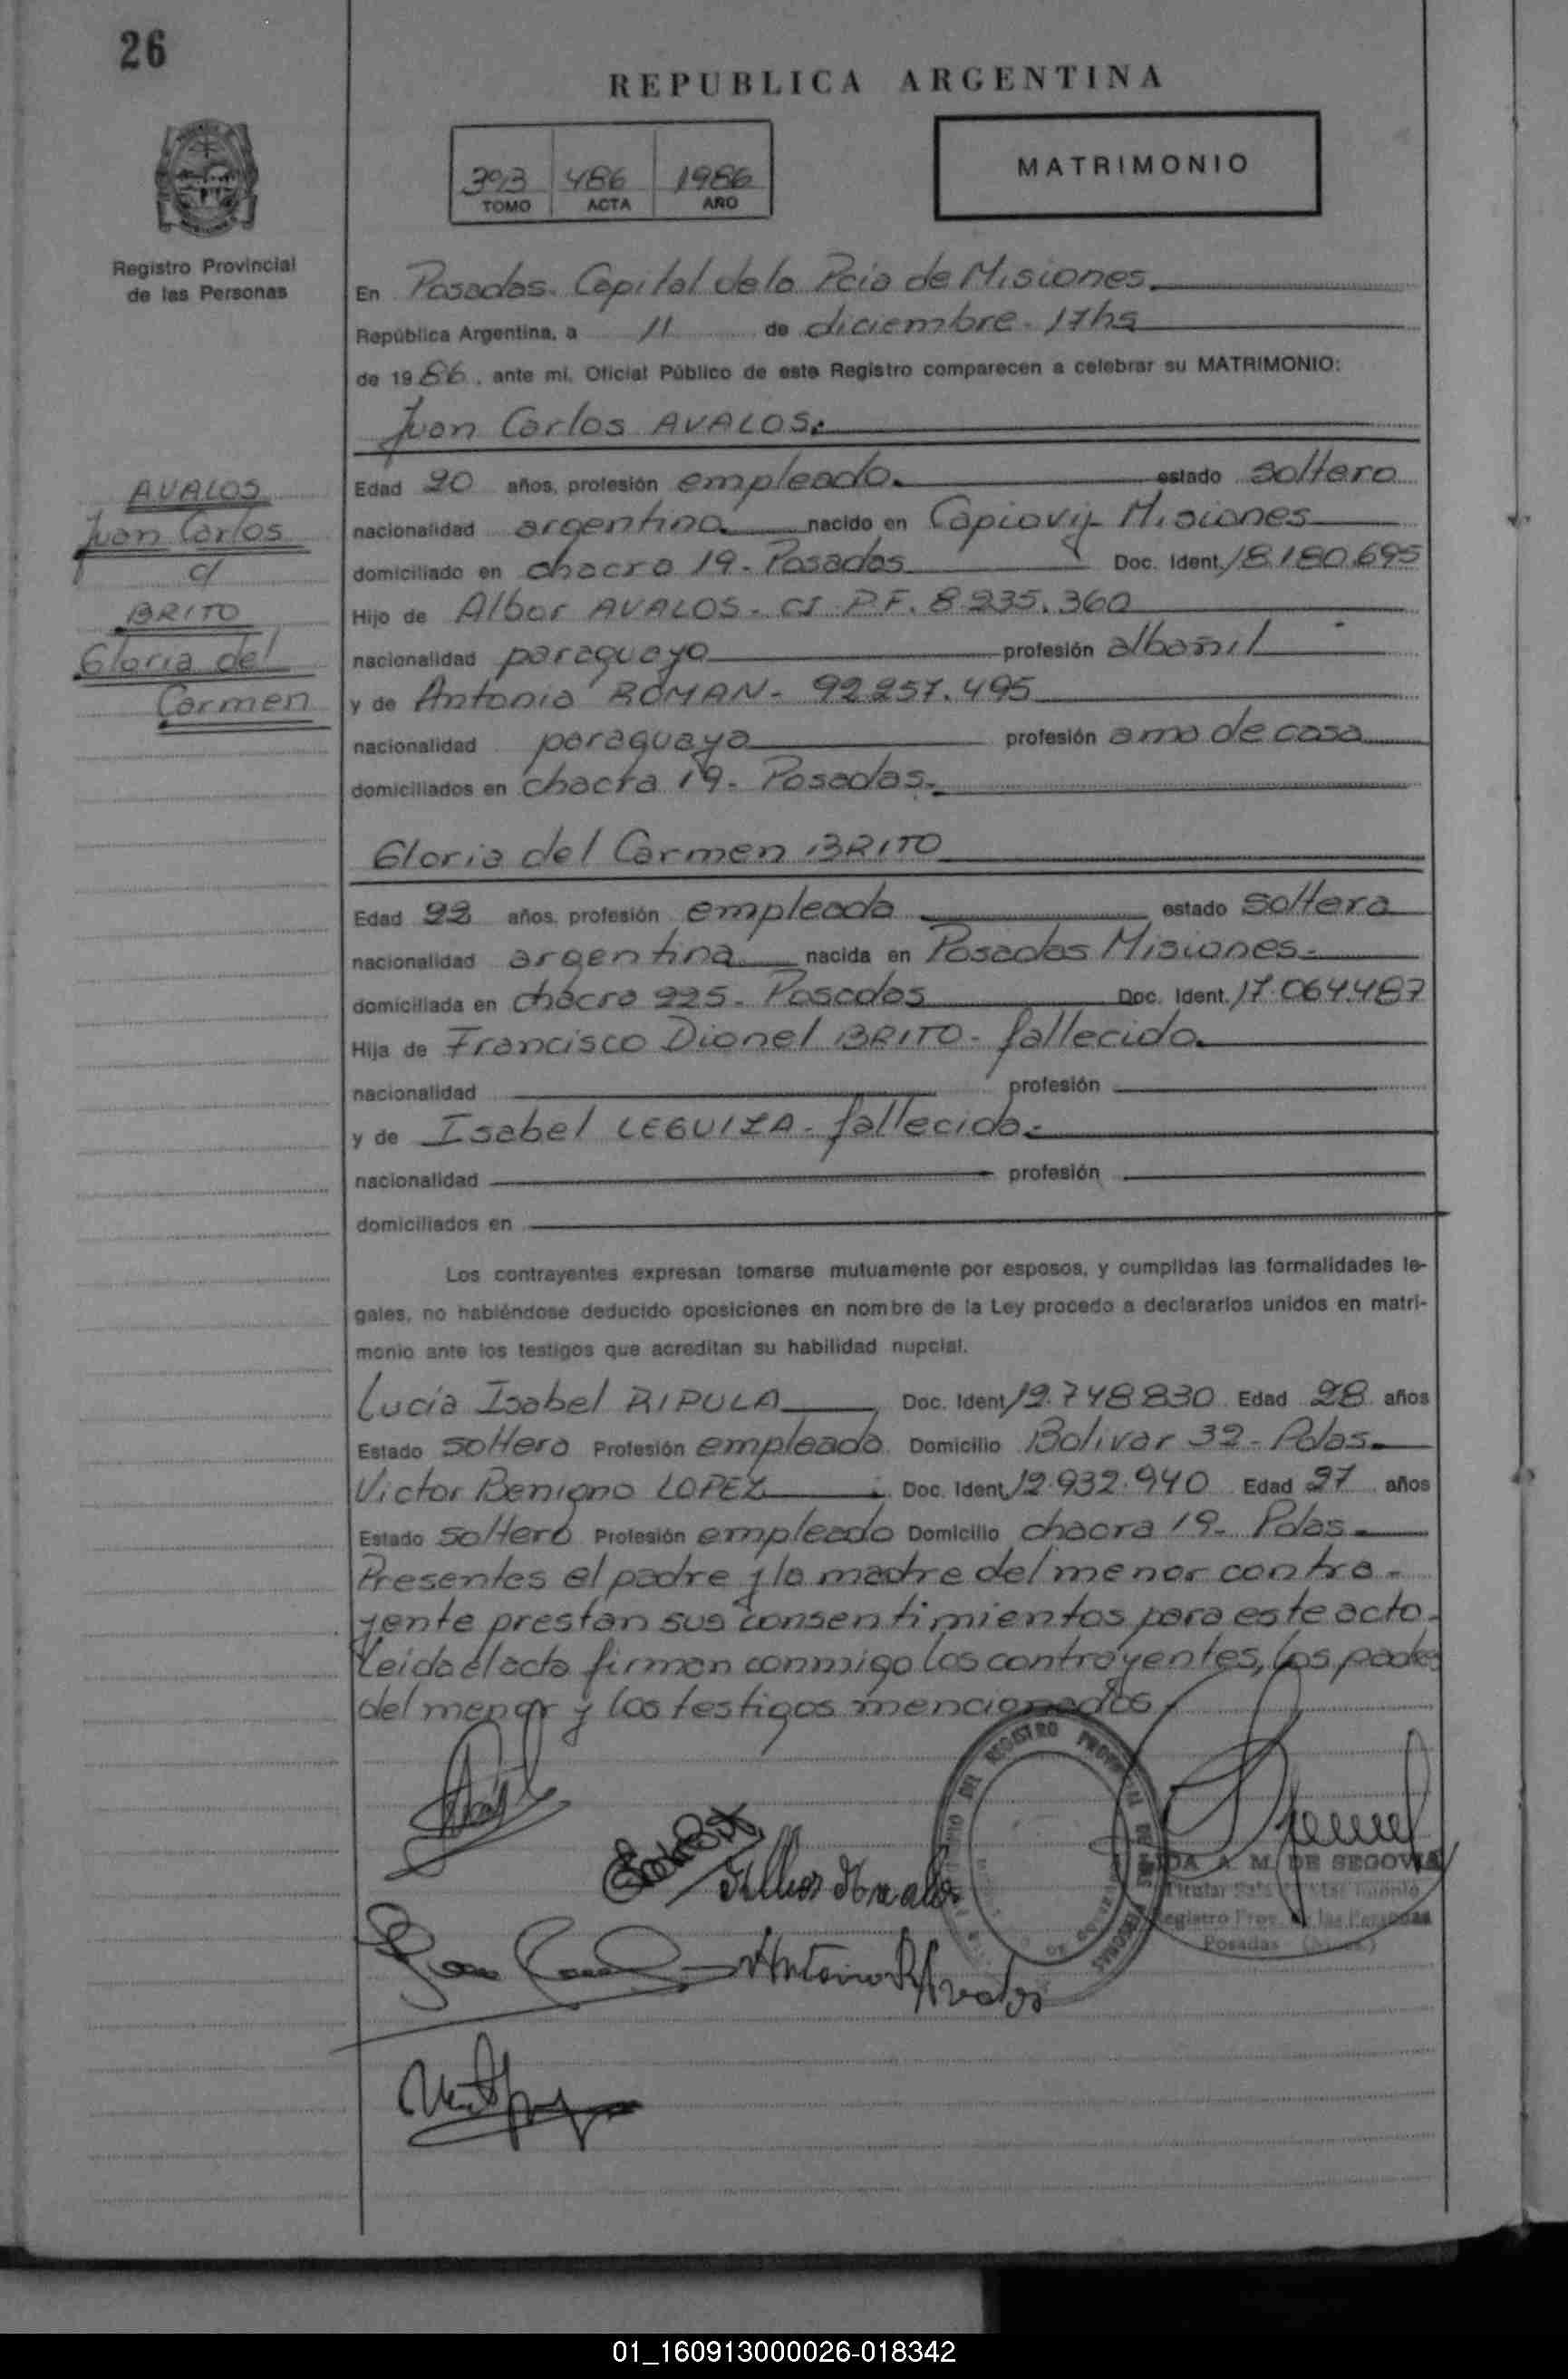 26
REPUBLICA ARGENTINA
MATRIMONIO
486 1986
TOMO ACTA AÑO
Registro Provincial
de las Personas
En Posadas. Capital de la Pcia de Misiones.
República Argentina, a 11 de diciembre - 17hs
de 1986, ante mí, Oficial Público de este Registro comparecen a celebrar su MATRIMONIO:
Juan Carlos AVALOS.
AVALOS
Juan Carlos
c/
BRITO
Gloria del
Carmen
Edad 20 años, profesión empleado. estado soltero
nacionalidad argentina nacido en Capiovy Misiones
domiciliado en chacra 19 - Posadas Doc. Ident. 18.180.695
Hijo de Albor AVALOS - CI P.F. 8.235.360
nacionalidad paraguaya profesión albañil
y de Antonia ROMAN - 92.257.495
nacionalidad paraguaya profesión ama de casa
domiciliados en chacra 19 - Posadas.
Gloria del Carmen BRITO
Edad 22 años, profesión empleada estado soltera
nacionalidad argentina nacida en Posadas Misiones.
domiciliada en chacra 225 - Posadas Doc. Ident. 17.064.487
Hija de Francisco Dionel BRITO - fallecido.
nacionalidad profesión
y de Isabel LEGUIZA - fallecida.
nacionalidad profesión
domiciliados en
Los contrayentes expresan tomarse mutuamente por esposos, y cumplidas las formalidades le-
gales, no habiéndose deducido oposiciones en nombre de la Ley procedo a declararlos unidos en matri-
monio ante los testigos que acreditan su habilidad nupcial.
Lucía Isabel RIPULA Doc. Ident 12.748.830 Edad 28 años
Estado soltera Profesión empleada Domicilio Bolivar 32 - Pdas.
Victor Benigno LOPEZ Doc. Ident. 12.932.940 Edad 27 años
Estado soltero Profesión empleado Domicilio chacra 19 - Pdas.
Presentes el padre y la madre del menor contra-
yente prestan sus consentimientos para este acto.
Leida el acta firman conmigo los contrayentes, los padres
del menor y los testigos mencionados.
DEL REGISTRO PROVINCIAL DE LAS PERSONAS
A. M. DE SEGOVIA
Titular
Registro Prov. de las Personas
Posadas
01_160913000026-018342